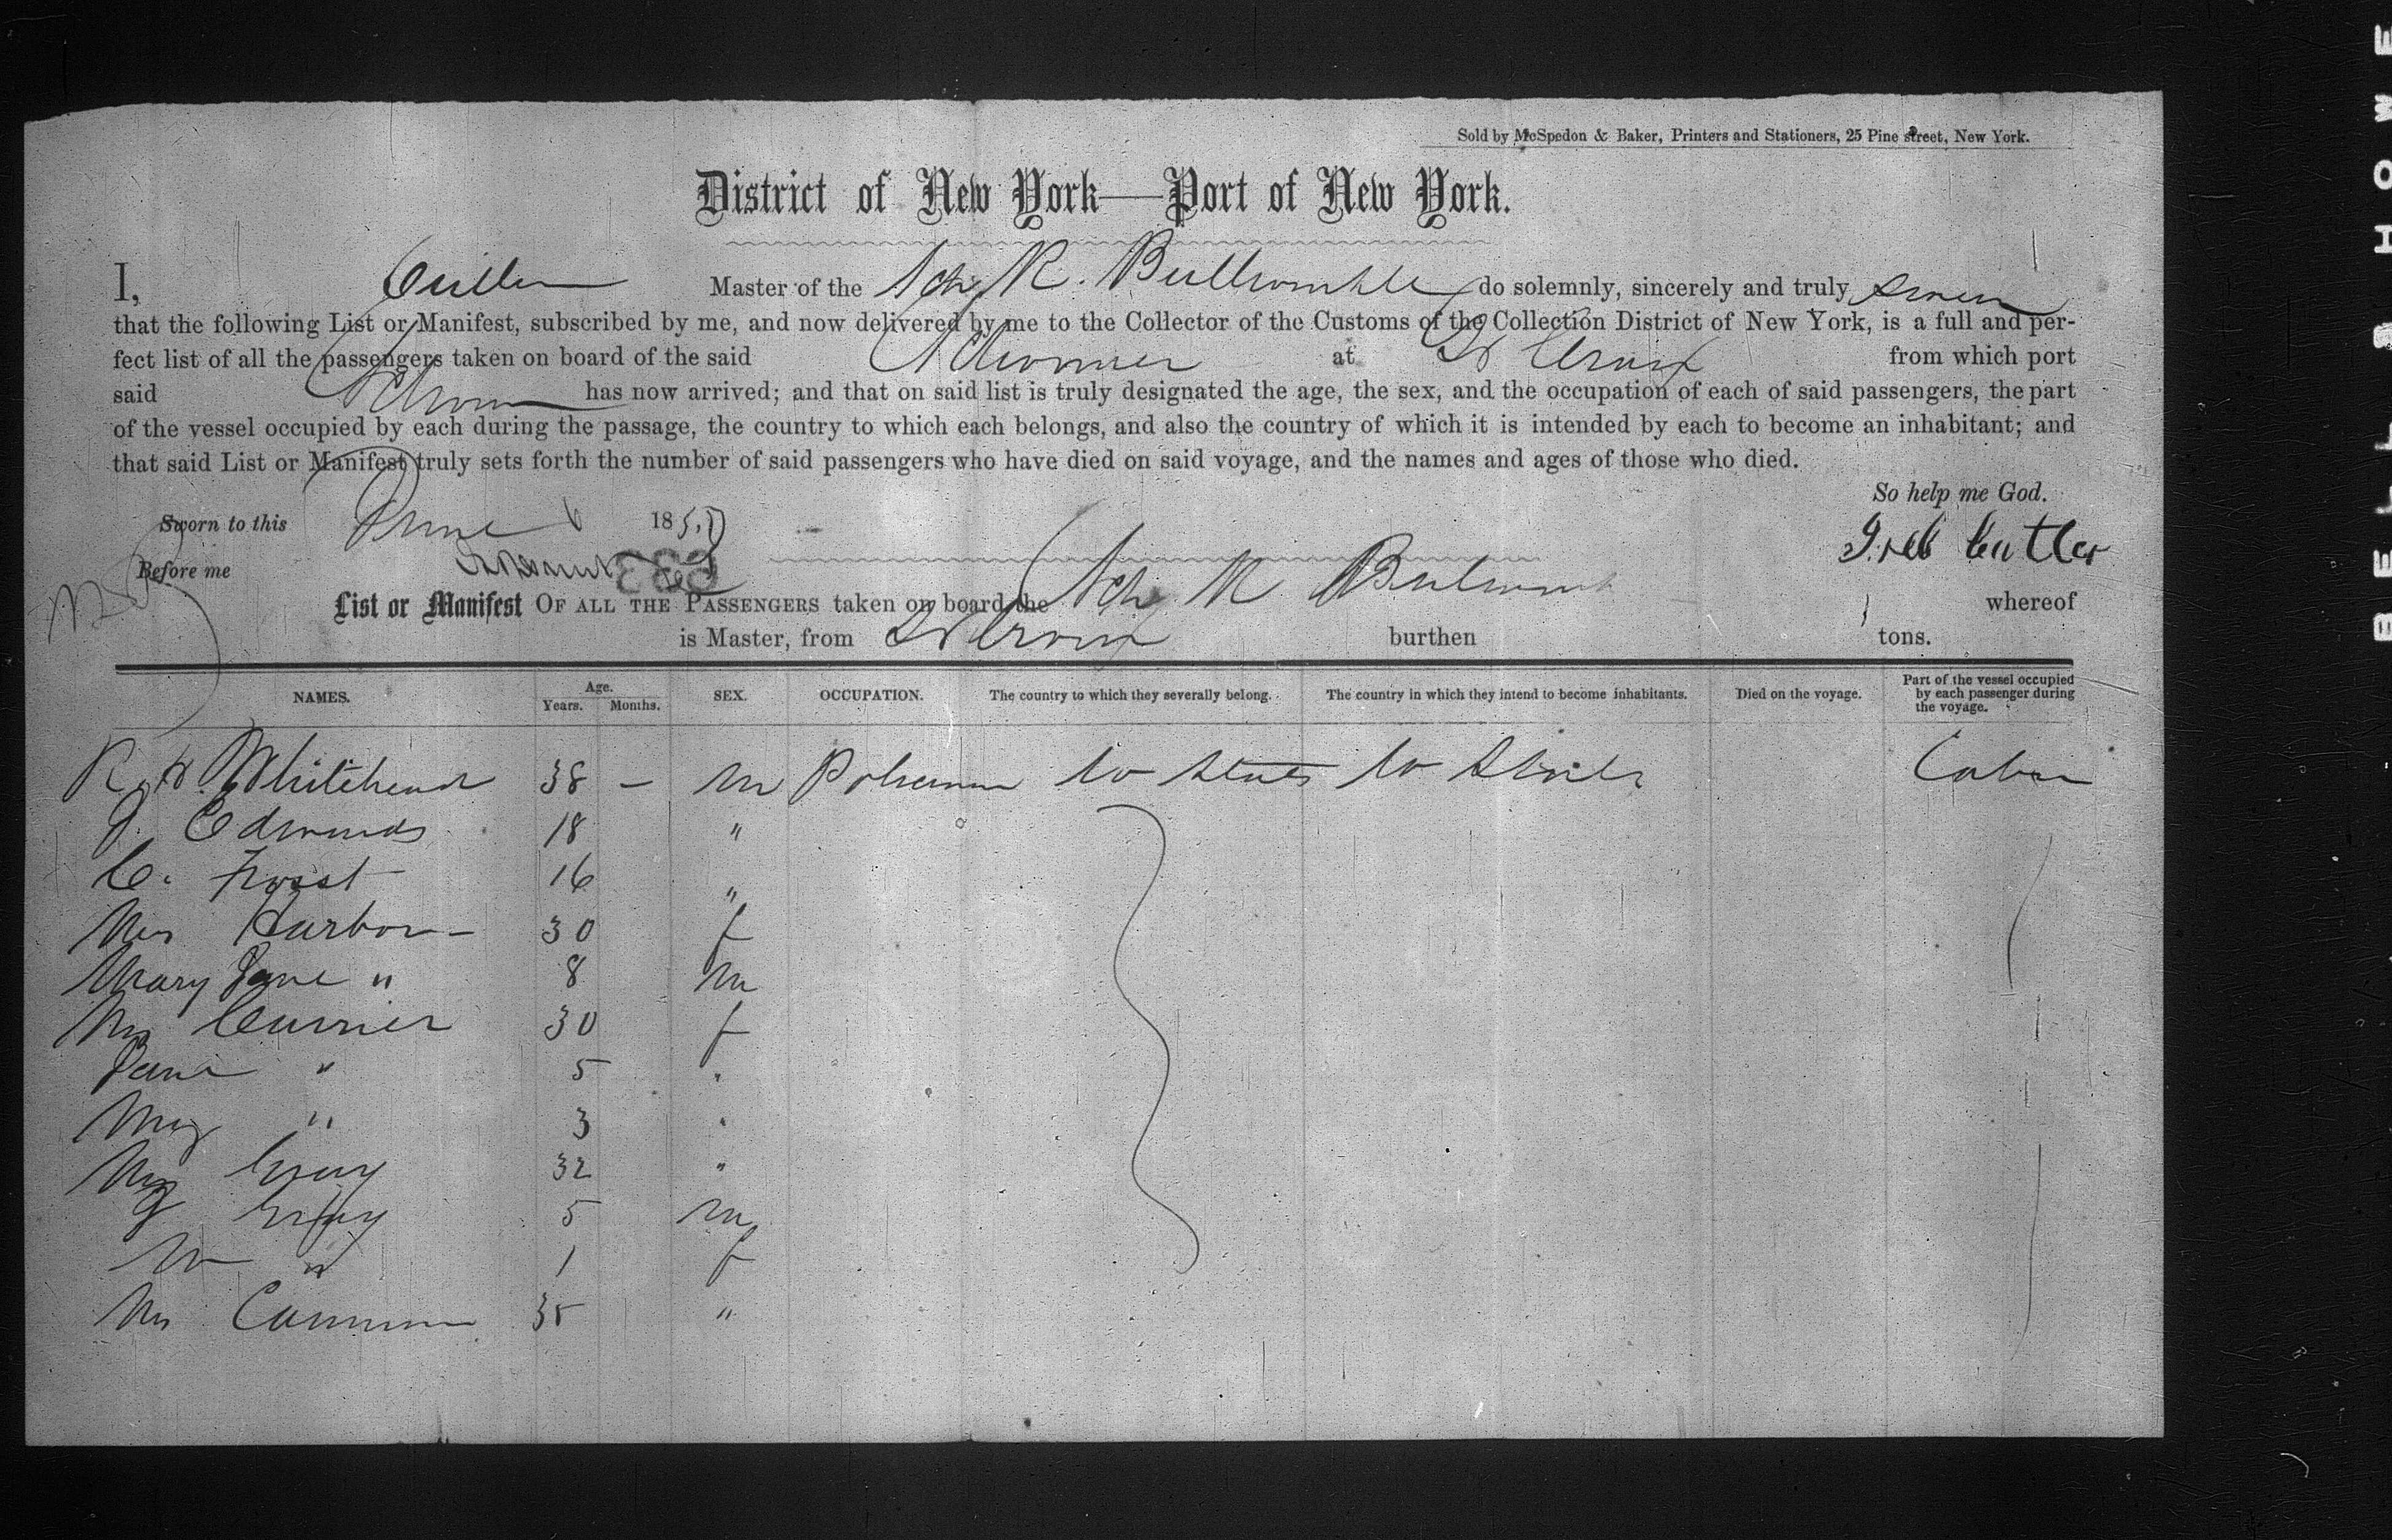 Sold by McSpedon & Baker, Printers and Stationers, 25 Pine street, New York.
District of New York—Port of New York.
I, Master of the Sch R. do solemnly, sincerely and truly swear
that the following List or Manifest, subscribed by me, and now delivered by me to the Collector of the Customs of the Collection District of New York, is a full and per-
fect list of all the passengers taken on board of the said Schooner at St Croix from which port
said Schooner has now arrived; and that on said list is truly designated the age, the sex, and the occupation of each of said passengers, the part
of the vessel occupied by each during the passage, the country to which each belongs, and also the country of which it is intended by each to become an inhabitant; and
that said List or Manifest truly sets forth the number of said passengers who have died on said voyage, and the names and ages of those who died.
So help me God.
Sworn to this June 6 185
Cutler
Before me 583
List or Manifest OF ALL THE PASSENGERS taken on board the Sch R whereof
is Master, from St Croix burthen tons.
NAMES. Age. Years. Months. SEX. OCCUPATION. The country to which they severally belong. The country in which they intend to become inhabitants. Died on the voyage. Part of the vessel occupied by each passenger during the voyage.
Whitehead 38 — m Policeman States States Cabin
J. Edwards 18 "
C. Frosst 16 "
Mrs Harbor 30 f
Mary Jane " 8 m
Mrs Currier 30 f
Jane " 5 "
May " 3 "
Mrs Gray 32 "
J Gray 5 m
M " 1 f
Mrs 35 "
BELL & HOWE